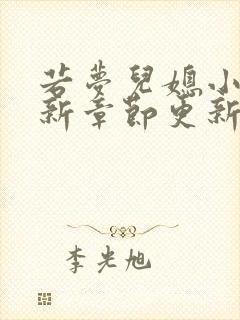 若夢兒媳小
新章節更新
李光旭